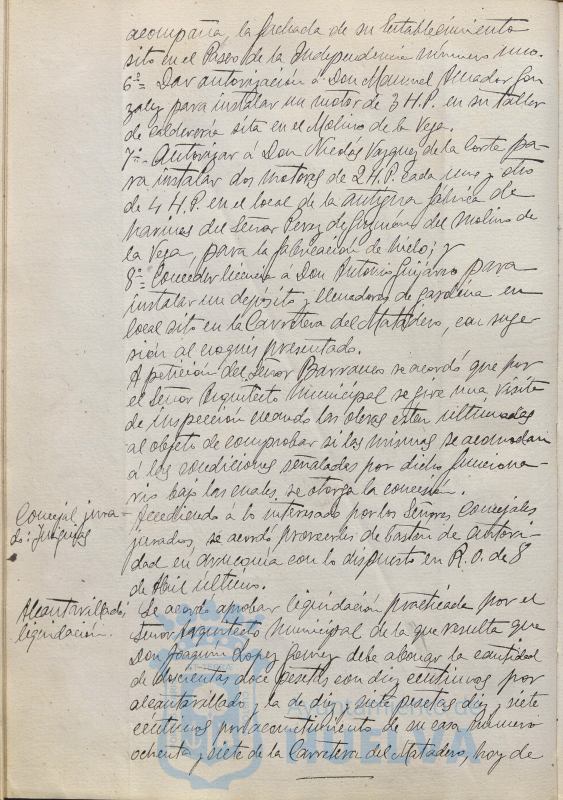 acompaña, la fachada de su establecimiento
sito en el Paseo de la Independencia número uno.
6º= Dar autorización á Don Manuel Amador Gon
zalez para instalar un motor de 3 H.P. en su taller
de calderería sita en el Molino de la Vega.
7º- Autorizar á Don Nicolás Vazquez de la Corte pa-
ra instalar dos motores de 2 H.P. cada uno y otro
de 4 H.P. en el local de la antigua fábrica de
harinas del Señor Perez de Guzmán del Molino de
la Vega, para la fabricación de hielo; y
8º= Conceder licencia á Don Antonio Guijarro para
instalar un depósito y llenadores de gasolina en
local sito en la Carretera del Matadero, con suge-
sión al croquis presentado.
A petición del Señor Barranco se acordó que por
el Señor Arquitecto Municipal se gire una visita
de inspección cuando las obras estén ultimadas
al objeto de comprobar si las mismas se acomodan
á las condiciones señaladas por dicho funciona-
rio bajo las cuales se otorga la concesión.
Concejal jura-
do:
Accediendo á lo interesado por los Señores Concejales
jurados, se acordó proveerles de bastón de autori-
dad en armonía con lo dispuesto en R.O. de 8
de Abril último.
Alcantarillado;
liquidación.
Se acordó aprobar liquidación practicada por el
Señor Arquitecto Municipal de la que resulta que
Don Joaquin Lopez Gomez debe abonar la cantidad
de doscientas doce pesetas con diez centimos por
alcantarillado y la de diez y siete pesetas diez y siete
centimos por acometimiento de su casa número
ochenta y siete de la Carretera del Matadero, hoy de
Ayuntamiento de
HUELVA